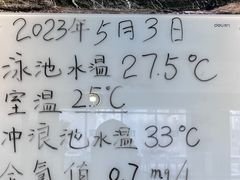 2023年5月3日
deli
泳池水温27.5℃
室温 25℃
冲浪池水温33℃
余氯值 0.7mg/L